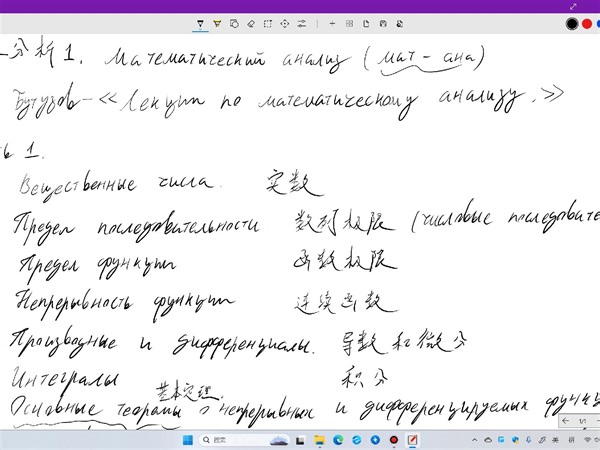 分析1. Математический анализ (мат-ана)
Бутузов - «Лекции по математическому анализу.»
ь 1.
Вещественные числа. 实数
Предел последовательности 数列极限 (числовые последовате
Предел функции 函数极限
Непрерывность функции 连续函数
Производные и дифференциалы. 导数和微分
Интегралы 积分
基本定理.
Основные теоремы о непрерывных и дифференцируемых функц
1/1
搜索
英 拼